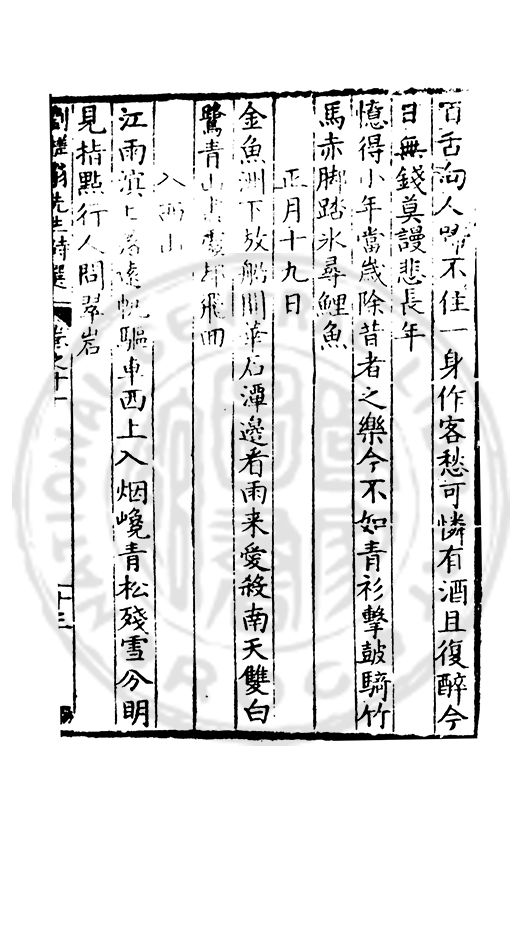 百舌向人啼不住一身作客愁可憐有酒且復醉今
日無錢莫謾悲長年
憶得小年當歲除昔者之樂今不如青衫擊鼓騎竹
馬赤脚踏氷尋鯉魚
正月十九日
金魚洲下放船開華石潭邊看雨来愛殺南天雙白
鷺青山飛回
入西山
江雨濵上驅車西上入烟巉青松殘雪分明
見指點行人問翠岩
劉槎翁先生詩選 卷之十一 十三